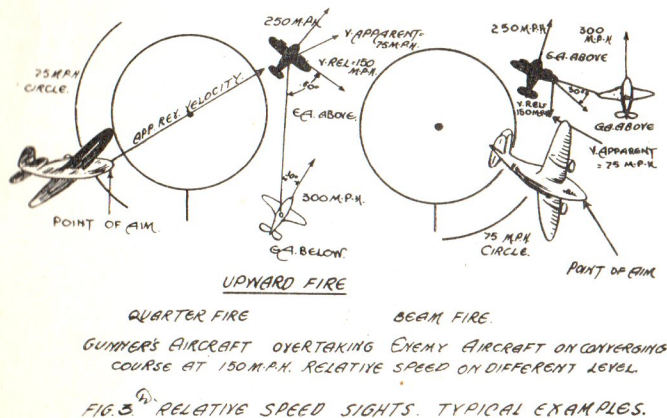 250 M.P.H.
V. APPARENT=
75 M.P.H.
V. REL=150
M.P.H.
75 M.P.H
CIRCLE.
APP. REL. VELOCITY.
E.A. ABOVE.
300 M.P.H.
POINT OF AIM.
G.A. BELOW.
250 M.P.H.
300
M.P.H
E.A. ABOVE
30°
V. REL=
150 M.P.H
G.A. ABOVE
V. APPARENT
= 75 M.P.H.
75 M.P.H
CIRCLE.
POINT OF AIM
UPWARD FIRE
QUARTER FIRE
BEAM FIRE.
GUNNER'S AIRCRAFT OVERTAKING ENEMY AIRCRAFT ON CONVERGING
COURSE AT 150 M.P.H. RELATIVE SPEED ON DIFFERENT LEVEL.
FIG. 3 RELATIVE SPEED SIGHTS. TYPICAL EXAMPLES.